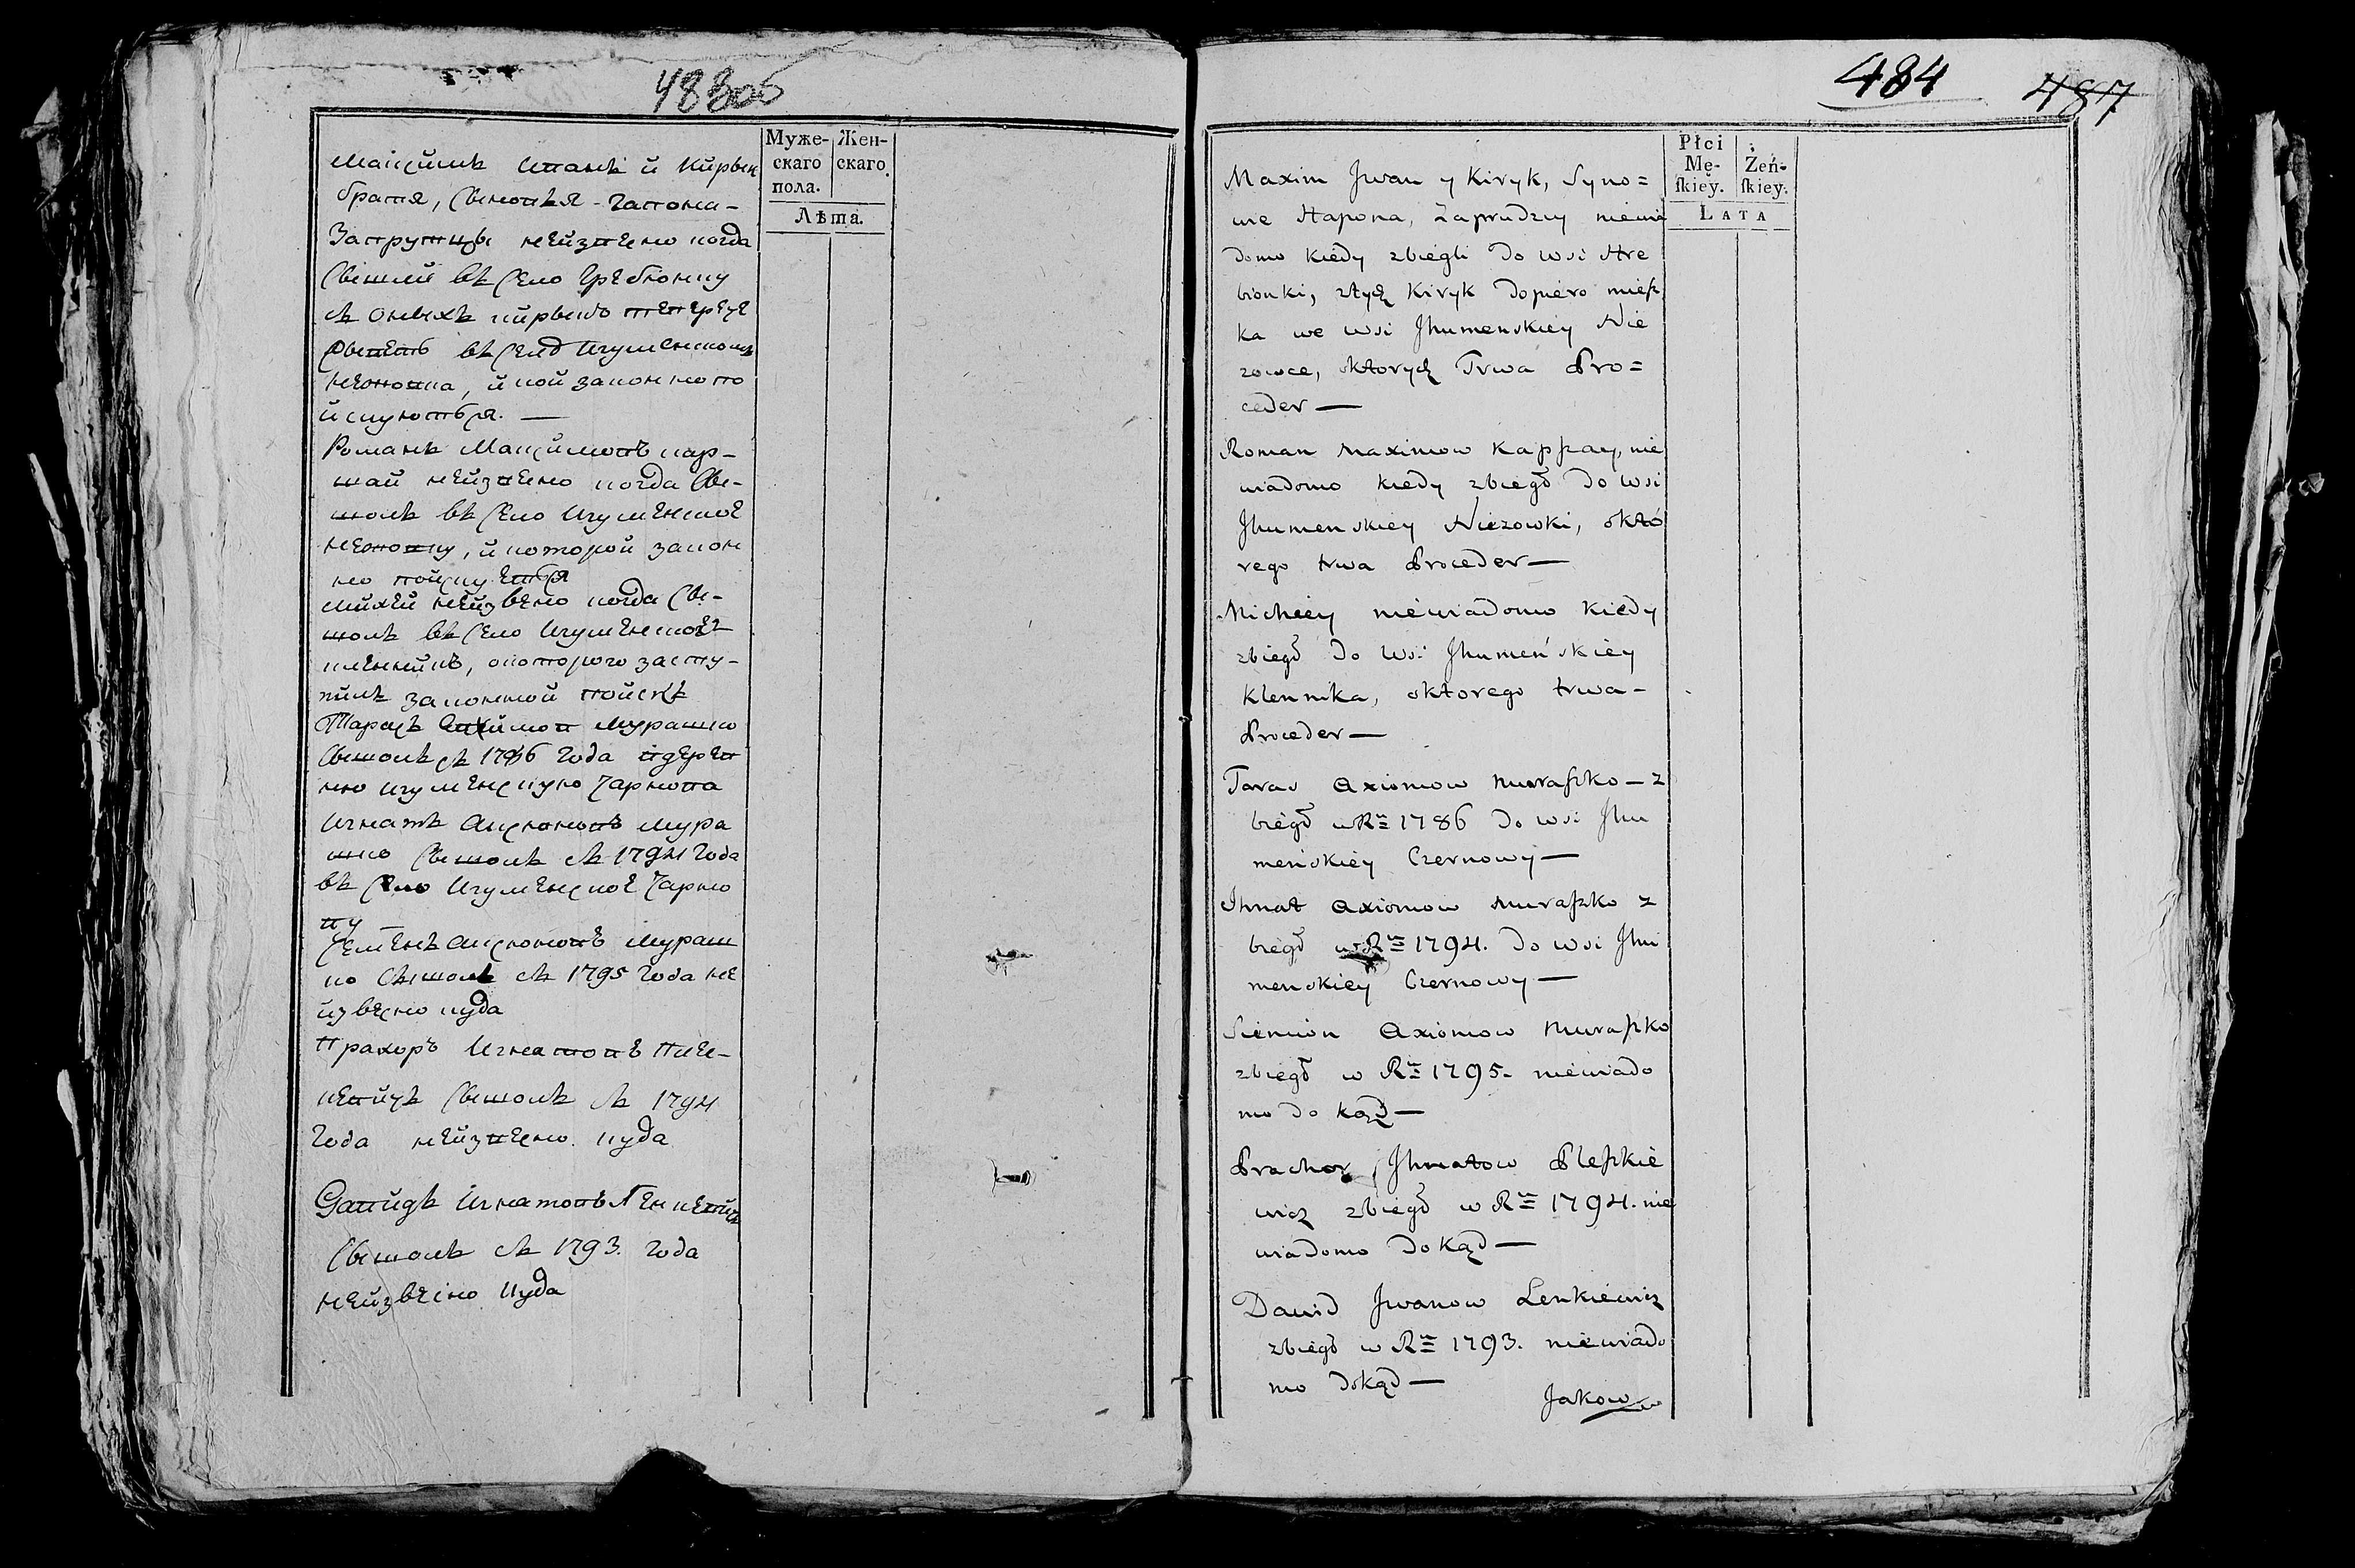 483об
Муже- Жен-
скаго скаго.
пола.
Лѣта.
Максимъ Иванъ и Кирыкъ
братя, Сыновья Гапона
Запрудцы неизвесно когда
Сышли въ село Гребіонку
съ оныхъ Кирыкъ теперече
въ селѣ Игуменской
и кой законно по
искуются. —
Романъ Максимовъ кар-
пай неизвесно когда Сы-
шолъ въ село Игуменское
и которой закон
но поискуется
Михей неизвесно когда Сы-
шолъ въ село Игуменское
кленникъ, о которого засту-
пилъ законной поискъ
Тарасъ Мурашко
Сышолъ съ 1786 года в дерев
ню Игуменскую Чарнова
Игнатъ Аксіоновъ Мура
шко Сышолъ съ 1794 года
въ село Игуменское Чарно
ву —
Семенъ Аксіоновъ Мураш
ко Сышолъ съ 1795 года не
извесно куда
Прахоръ Игнатовъ Пле-
кевичъ Сышолъ съ 1794
года неизвесно куда
Давидъ Игнатовъ Ленкевичъ
Сышолъ съ 1793. года
неизвесно куда
484 487
Płci
Mę- Żeń-
skiey. skiey.
LATA
Maxim Jwan y Kiryk, Syno=
wie Hapona, Zaprudzcy niewia
domo kiedy zbiegli do wsi Hre
bionki, ztych Kiryk dopiero miesz
ka we wsi Jhumenskiey Nie
zowce, októrych Trwa Pro=
ceder —
Roman Maximow Kappay, nie
wiadomo kiedy zbiegł do wsi
Jhumenskiey Niezowki, októ
rego trwa Proceder —
Micheey niewiadomo kiedy
zbiegł do wsi Jhumeńskiey
Klennika, októrego trwa -
Proceder —
Taras Axionow Muraszko — z
biegł w Rῦ 1786 do wsi Jhu
meńskiey Czernowy —
Ihnat Axionow Muraszko z
biegł w Rῦ 1794. do wsi Jhu
menskiey Czernowy —
Siemion Axionow Muraszko
zbiegł w Rῦ 1795. niewiado
mo do kąd —
Prachor Jhnatow Pleszkie
wicz zbiegł w Rῦ 1794. nie
wiadomo dokąd —
Dawid Jwanow Lenkiewicz
zbiegł w Rῦ 1793. niewiado
mo dokąd —
Jakow